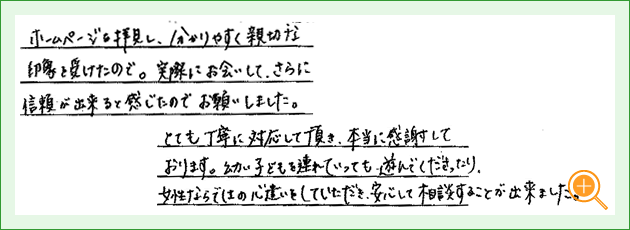 ホームページを拝見し、分かりやすく親切な
印象を受けたので。実際にお会いして、さらに
信頼が出来ると感じたのでお願いしました。
とても丁寧に対応して頂き、本当に感謝して
おります。幼い子どもを連れていっても、遊んでくださったり、
女性ならではの心遣いをしていただき、安心して相談することが出来ました。